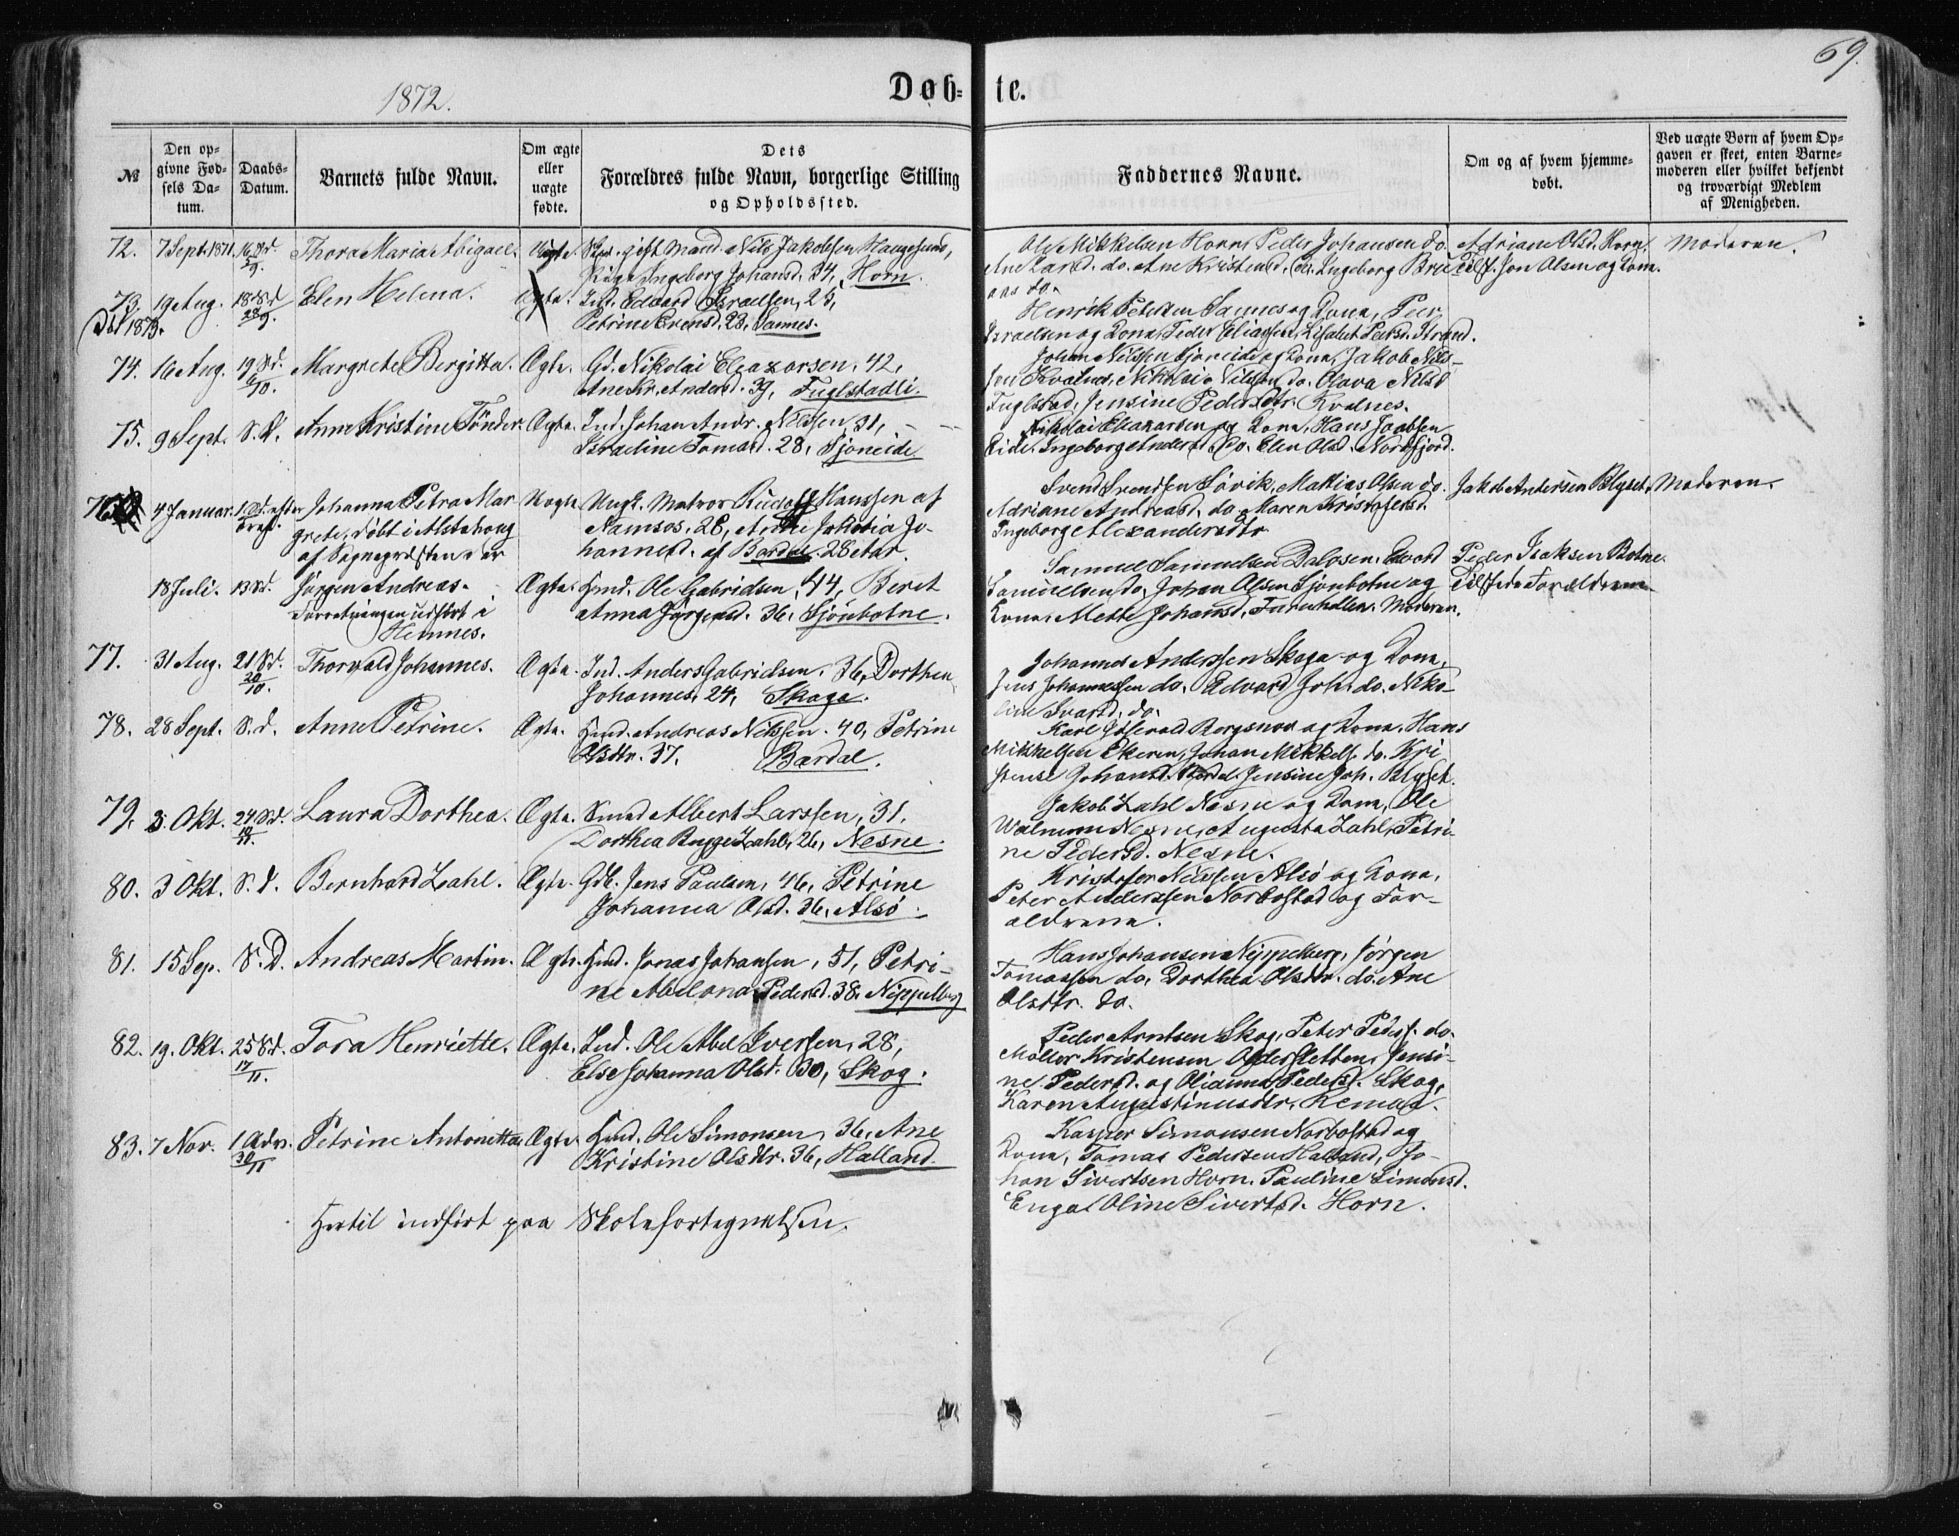 69.
1872.
Døb- te.
№
Den op-
givne Fød-
sels Da-
tum.
Daabs-
Datum.
Barnets fulde Navn.
Om ægte
eller
uægte
fødte.
Dets
Forældres fulde Navn, borgerlige Stilling
og Opholdssted.
Faddernes Navne.
Om og af hvem hjemme-
døbt.
Ved uægte Børn af hvem Op-
gaven er skeet, enten Barne-
moderen eller hvilket bekjendt
og troværdigt Medlem
af Menigheden.
72. 7 Sept. 1871. Thora Maria Abigael. Uægte. gift Mand Nils Jakobsen Haugesund,
Pige Ingeborg Johansd. 34, Horn.
Ole Mikkelsen Horn, Peder Johansen do.
Ane Larsd. do. Ane Kristensd. do. Ingeborg
Adriane Olsd. Horn.
Tilst. Jon Olsen og Kona.
Moderen.
73. 19 Aug. 18 S.d. 28/9. Elen Helena. Ægte. Ind. Edvard Israelsen, 25,
Petrine 23, Sannes.
Henrik Petersen Sannes og Kona, Peer
Israelsen og Kona, Peder Eliassen, Lisabet Pedersd. Strand.
74. 16 Aug. 19 S.d. 6/10. Margrete Bergitta. Ægte. Gd. Nikolai Eleazarsen, 42,
Ane Kr. Andersd. 39, Fuglstadli.
Johan Nilssen Sjoneide og Kona, Jakob Nils-
sen Kvalnes, Nikolai Nilssen do. Olava Nilsd.
Fuglstad, Jensine Pedersdtr. Kvalnes.
75. 9 Sept. S.d. Anne Kristine Tønder. Ægte. Ind. Johan Andr. Nilssen, 31,
Israeline Tomasd. 28, Sjoneide
Nikolai Eleazarsen og Kona, Hans Jacobsen
Eide, Ingeborg Andersd. do. Elen Olsd. Nordfjord.
76. 4 Januar. 1 S.d. efter Johanna Petra Mar-
grete, døbt i Alstahoug
af Sognepræsten er
Uægte Ungk. Matros Rudolf Hanssen af
Namsos, 28, Anne Jakobia Jo-
hannesd. af Bardal 28 Aar.
Svend Svendsen Søvik, Mathias Olsen do.
Adriane Andreasd. do. Maren Kristofersd.
Ingeborg Alexandersdtr.
Jakob Andersen Blyset, Moderen.
18 Juli. 13 S.d. Jørgen Andreas.
Forretningen udført i
Hemnes.
Ægte. Hmd. Ole Gabrielsen, 44, Beret
Anna Jørgensd. 36, Sjonbotne.
Samuel Samuelsen Dalosen, Edvard
Samuelsen do, Johan Olsen Sjonbotne og
Kona, Mette Johansd. Furuhatten. Moderen.
Peder Isaksen Botne.
Tilstede Forældrene.
77. 31 Aug. 21 S.d. 20/10. Thorvald Johannes. Ægte. Ind. Anders Gabrielsen, 36, Dorthea
Johannes. 24, Skaga.
Johannes Anderssen Skaga og Kona,
Jens Johannessen do. Edvard Joh. do. Niko-
line Ivarsd. do.
78. 28 Sept. S.d. Anne Petrine. Ægte. Hmd. Andreas Nilssen. 40, Petrine
Olsdtr. 37. Bardal.
Karl og Kona, Hans
Mikkelsen Økeren, Johan Mikkels. do. Kri
stense Johansd. Jensine Joh. Blyset.
79. 3. Okt. 24 S.d. 10/11. Laura Dorthea. Ægte. Smed Albert Larssen, 31.
Dorthea Bugge Zahl, 26, Nesne.
Jakob Zahl Nesne og Kona, Ole
Walnum Nesne, Augusta Zahl, Petri-
ne Pedersd. Nesne.
80. 3 Okt. S.d. Bernhard Zahl. Ægte. Gdb. Jens Paulsen, 46, Petrine
Johanna Olsd. 36, Alsø.
Kristofer Nilssen Alsø og Kona,
Peter Anderssen Norbostad og For-
ældrene.
81. 15 Sep. S.D. Andreas Martin. Ægte. Hmd. Jonas Johansen, 51, Petri-
ne Abelona Pedersd. 38, Nippelberg
Hans Johansen Nippelberg, Jørgen
Tomassen do, Dorthea Olsdtr. do. Ane
Olsdtr. do.
82. 19. Okt. 25 S.d. 17/11. Tora Henriette. Ægte. Ind. Ole Abel Iversen, 28,
Else Johanna Olsd. 30, Skog.
Peder Arntsen Skog, Peter Peders. do.
Møller Kristensen Oldersletten, Jensi-
ne Pedersd. og Olianna Pedersd. Skog,
Karen Augustinusdtr. Remaa.
83. 7 Nov. 1 Adv. 30/11 Petrine Antonetta. Ægte. Hmd. Ole Simonsen, 36, Ane
Kristine Olsdtr. 36, Halland.
Kasper Simonsen Norbostad og
Kona, Tomas Pedersen Halland, Jo-
han Sivertsen Horn. Pauline Simonsd.
Enga, Oline Sivertsd. Horn.
Hertil indført paa Skolefortegnelsen.